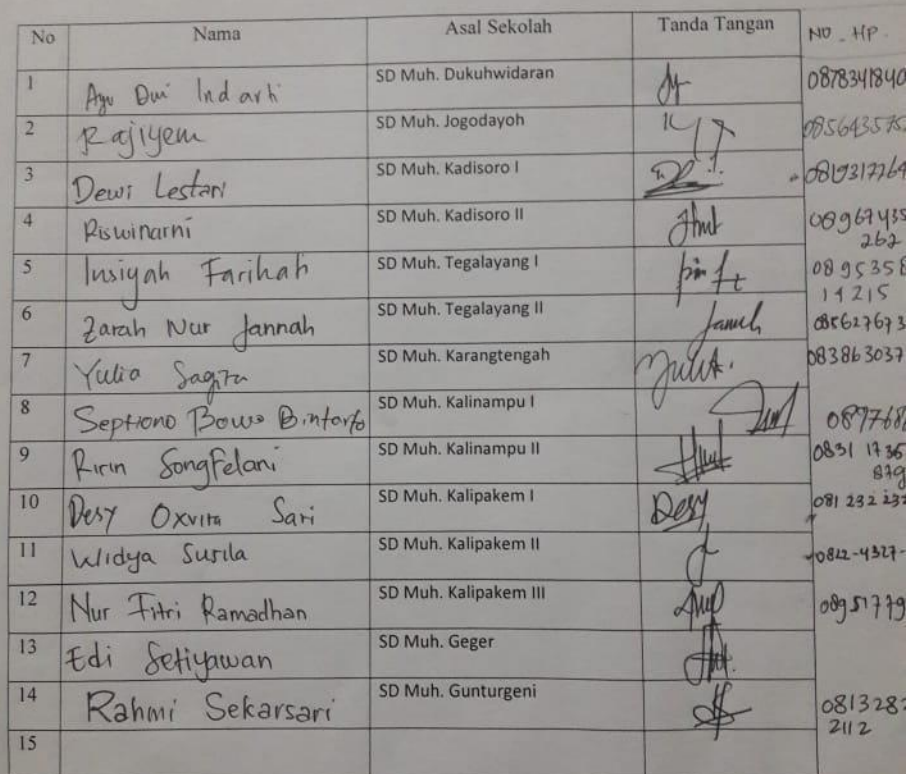 No Nama Asal Sekolah Tanda Tangan NO. HP.
1 Ayu Dwi Indarti SD Muh. Dukuhwidaran 0878341840
2 Rajiyem SD Muh. Jogodayoh
3 Dewi Lestari SD Muh. Kadisoro I
4 Riswinarni SD Muh. Kadisoro II 08967435
262
5 Insiyah Farihah SD Muh. Tegalayang I 0895358
14215
6 Zarah Nur Jannah SD Muh. Tegalayang II
7 Yulia Sagita SD Muh. Karangtengah 083863037
8 Septiono Bowo Bintarto SD Muh. Kalinampu I
9 Ririn Songfelani SD Muh. Kalinampu II 0831 1736
879
10 Desy Oxvita Sari SD Muh. Kalipakem I Desy 081 232 232
11 Widya Susila SD Muh. Kalipakem II 0822-4327-
12 Nur Fitri Ramadhan SD Muh. Kalipakem III 08951779
13 Edi Setiyawan SD Muh. Geger
14 Rahmi Sekarsari SD Muh. Gunturgeni 0813282
2112
15